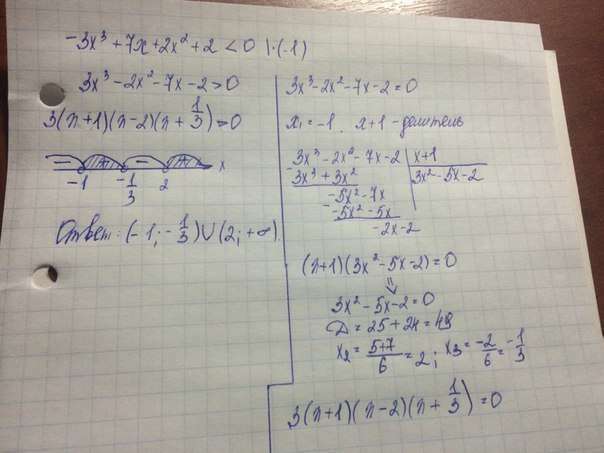 -3x³ + 7x + 2x² + 2 < 0 | ·(-1)
3x³ - 2x² - 7x - 2 > 0
3(x+1)(x-2)(x + 1/3) > 0
- + - + x
-1 -1/3 2
Ответ: (-1; -1/3) ∪ (2; +∞)
3x³ - 2x² - 7x - 2 = 0
x₁ = -1. x+1 - делитель
3x³ - 2x² - 7x - 2 | x+1
3x³ + 3x² | 3x² - 5x - 2
-5x² - 7x
-5x² - 5x
-2x - 2
(x+1)(3x² - 5x - 2) = 0
⇓
3x² - 5x - 2 = 0
D = 25 + 24 = 49
x₂ = (5+7)/6 = 2; x₃ = -2/6 = -1/3
3(x+1)(x-2)(x + 1/3) = 0